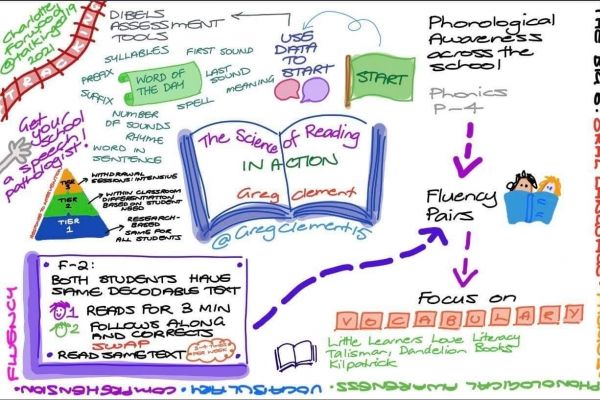 Charlotte
Forwood
@talkingof19
2021
TRACKING
DIBELS
ASSESSMENT
TOOLS
USE
DATA
TO
START
START
SYLLABLES
FIRST SOUND
PREFIX
WORD OF
THE DAY
LAST
SOUND
MEANING
SUFFIX
SPELL
NUMBER
OF SOUNDS
RHYME
WORD IN
SENTENCE
Get your
school
a speech
pathologist!
TIER
3
WITHDRAWAL
SESSIONS: INTENSIVE
TIER
2
WITHIN CLASSROOM
DIFFERENTIATION
BASED ON STUDENT
NEED
TIER
1
RESEARCH-
BASED
SAME FOR
ALL STUDENTS
The Science of Reading
IN ACTION
Greg Clement
@GregClement15
Phonological
Awareness
across the
school
Phonics
P-4
Fluency
Pairs
Focus on
VOCABULARY
Little Learners Love Literacy
Talisman, Dandelion Books
Kilpatrick
F-2:
BOTH STUDENTS HAVE
SAME DECODABLE TEXT
1 READS FOR 3 MIN
2 FOLLOWS ALONG
AND CORRECTS
SWAP
READ SAME TEXT
3-4 TIMES
A PER WEEK
THE BIG 6: ORAL LANGUAGE
PHONOLOGICAL AWARENESS
VOCABULARY
COMPREHENSION
FLUENCY